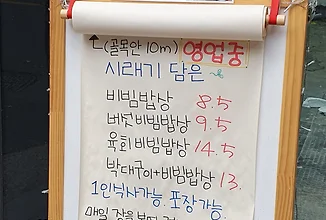 (골목안 10m) 영업중
시래기 담은
비빔밥상 8.5
버섯비빔밥상 9.5
육회비빔밥상 14.5
박대구이+비빔밥상 13.
1인식사가능. 포장가능.
매일 장을 보며